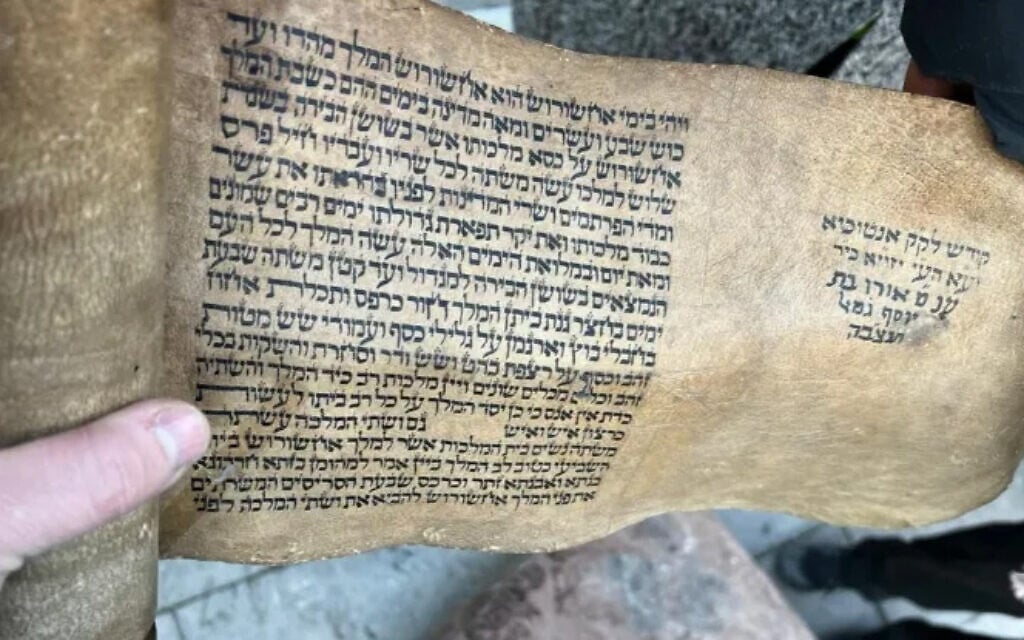 ויהי בימי אחשורוש הוא אחשורוש המלך מהדו ועד
כוש שבע ועשרים ומאה מדינה בימים ההם כשבת המלך
אחשורוש על כסא מלכותו אשר בשושן הבירה בשנת
שלוש למלכו עשה משתה לכל שריו ועבדיו חיל פרס
ומדי הפרתמים ושרי המדינות לפניו בהראתו את עשר
כבוד מלכותו ואת יקר תפארת גדולתו ימים רבים שמונים
ומאת יום ובמלואת הימים האלה עשה המלך לכל העם
הנמצאים בשושן הבירה למגדול ועד קטן משתה שבעת
ימים בחצר גנת ביתן המלך חור כרפס ותכלת אחוז
בחבלי בוץ וארגמן על גלילי כסף ועמודי שש מטות
זהב וכסף על רצפת בהט ושש ודר וסחרת והשקות בכלי
זהב וכלים מכלים שונים ויין מלכות רב כיד המלך והשתיה
כדת אין אנס כי כן יסד המלך על כל רב ביתו לעשות
כרצון איש ואיש גם ושתי המלכה עשתה
משתה נשים בית המלכות אשר למלך אחשורוש ביום
השביעי כטוב לב המלך ביין אמר למהומן בזתא חרבונא
בגתא ואבגתא זתר וכרכס שבעת הסריסים המשרתים
את פני המלך אחשורוש להביא את ושתי המלכה לפני
קודש לקק אנטוכיא
יעא
ענ מ אורו בת
יוסף
תנצבה